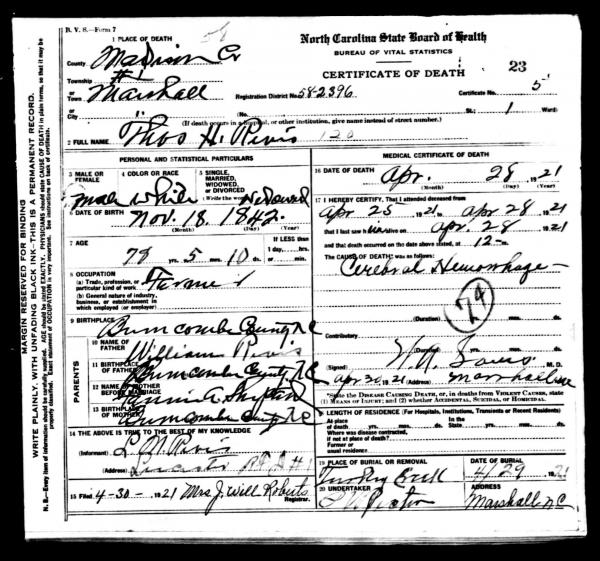 B. V. S.—Form 7
1 PLACE OF DEATH
North Carolina State Board of Health
BUREAU OF VITAL STATISTICS
CERTIFICATE OF DEATH
23
County Madison Co
Township #1
or
Town Marshall
Registration District No. 58-2396
Certificate No. 5
or
City
(No.
St.; 1 Ward)
(If death occurs in a hospital, or other institution, give name instead of street number.)
2 FULL NAME Thos H. Revis 120
PERSONAL AND STATISTICAL PARTICULARS
3 MALE OR FEMALE Male
4 COLOR OR RACE White
5 SINGLE, MARRIED, WIDOWED, OR DIVORCED (Write the word) Widowed
6 DATE OF BIRTH Nov. 18. 1842.
(Month) (Day) (Year)
7 AGE 78 yrs. 5 mos. 10 ds.
If LESS than 1 day, hrs. or min.
8 OCCUPATION
(a) Trade, profession, or particular kind of work
(b) General nature of industry, business, or establishment in which employed (or employer)
9 BIRTHPLACE Buncombe County, N.C
PARENTS
10 NAME OF FATHER William Revis
11 BIRTHPLACE OF FATHER Buncombe County, N.C
12 NAME OF MOTHER BEFORE MARRIAGE
13 BIRTHPLACE OF MOTHER Buncombe County, N.C
14 THE ABOVE IS TRUE TO THE BEST OF MY KNOWLEDGE
(Informant) Revis
(Address) R.F.D #1
15 Filed 4-30- 1921 Mrs J. Will Roberts
Registrar.
MEDICAL CERTIFICATE OF DEATH
16 DATE OF DEATH Apr. 28, 1921
(Month) (Day) (Year)
17 I HEREBY CERTIFY, That I attended deceased from
Apr 25 1921 to Apr 28 1921
that I last saw h alive on Apr. 28 1921
and that death occurred on the date above stated, at 12 m.
The CAUSE OF DEATH was as follows:
Cerebral Hemorrhage
74
(Duration)
Contributory
(Duration)
(Signed) M. D.
Apr 30, 1921 (Address) Marshall
*State the DISEASE CAUSING DEATH, or, in deaths from VIOLENT CAUSES, state (1) MEANS OF INJURY; and (2) whether ACCIDENTAL, SUICIDAL, or HOMICIDAL.
18 LENGTH OF RESIDENCE (For Hospitals, Institutions, Transients or Recent Residents)
At place of death yrs. mos. ds.
In the State yrs. mos. ds.
Where was disease contracted, if not at place of death?
Former or usual residence
19 PLACE OF BURIAL OR REMOVAL
DATE OF BURIAL
Turkey Creek 4/29 1921
20 UNDERTAKER
ADDRESS
Marshall N.C
MARGIN RESERVED FOR BINDING
WRITE PLAINLY, WITH UNFADING BLACK INK—THIS IS A PERMANENT RECORD.
N. B.—Every item of information should be carefully supplied. AGE should be stated EXACTLY. PHYSICIANS should state CAUSE OF DEATH in plain terms, so that it may be properly classified. Exact statement of OCCUPATION is very important. See instructions on back of certificate.